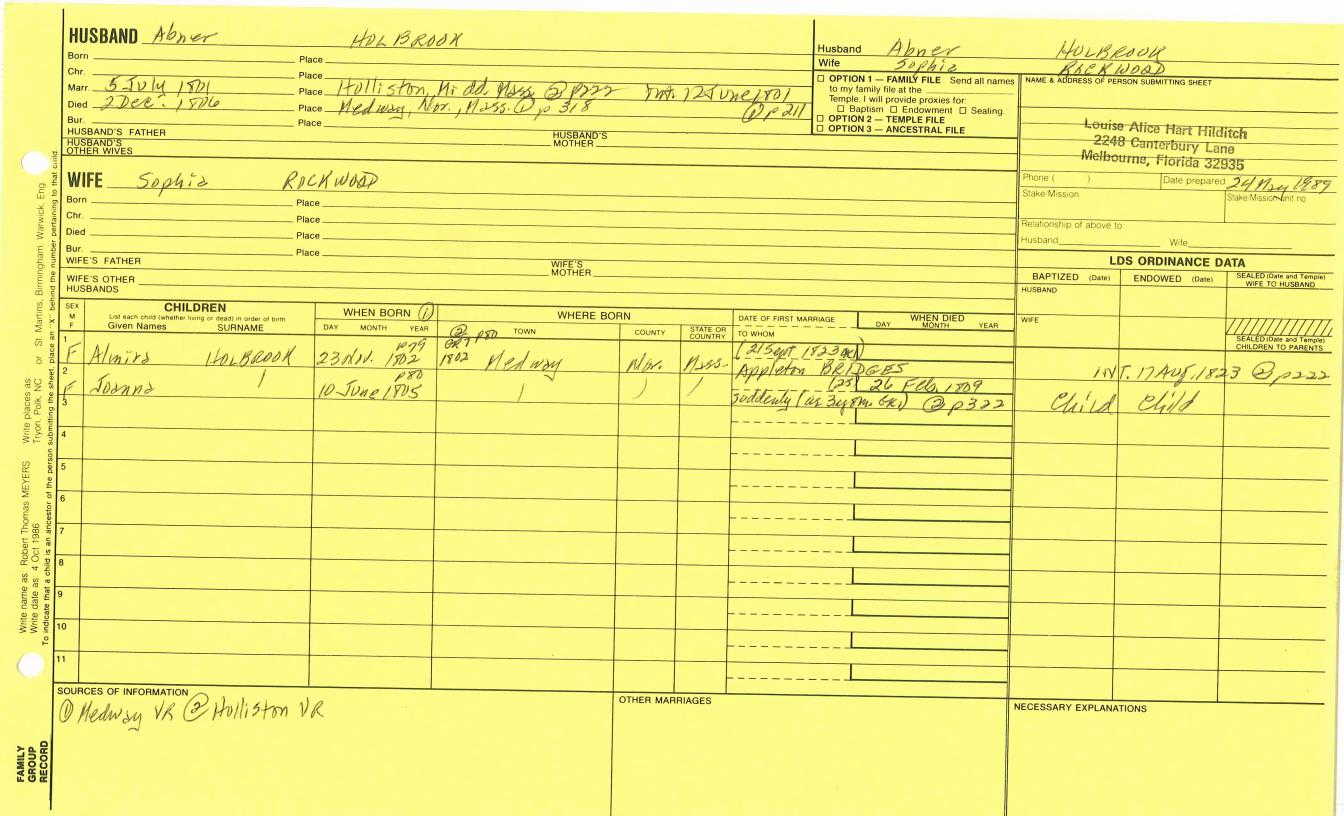 HUSBAND Abner HOLBROOK
Born Place
Chr. Place
Marr. 5 July 1801 Place Holliston, Midd. Mass. ② p222 Int. 12 June 1801
Died 2 Dec. 1806 Place Medway, Nor., Mass. ① p 318 ① p 211
Bur. Place
HUSBAND'S FATHER HUSBAND'S MOTHER
HUSBAND'S OTHER WIVES
Husband Abner HOLBROOK
Wife Sophia ROCKWOOD
☐ OPTION 1 — FAMILY FILE Send all names
to my family file at the
Temple. I will provide proxies for:
☐ Baptism ☐ Endowment ☐ Sealing.
☐ OPTION 2 — TEMPLE FILE
☐ OPTION 3 — ANCESTRAL FILE
NAME & ADDRESS OF PERSON SUBMITTING SHEET
Louise Alice Hart Hilditch
2248 Canterbury Lane
Melbourne, Florida 32935
Phone ( ) Date prepared 24 May 1989
Stake/Mission Stake/Mission unit no
Relationship of above to:
Husband Wife
WIFE Sophia ROCKWOOD
Born Place
Chr. Place
Died Place
Bur. Place
WIFE'S FATHER WIFE'S MOTHER
WIFE'S OTHER HUSBANDS
LDS ORDINANCE DATA
BAPTIZED (Date) ENDOWED (Date) SEALED (Date and Temple) WIFE TO HUSBAND
HUSBAND
WIFE
SEALED (Date and Temple) CHILDREN TO PARENTS
SEX M F
CHILDREN
List each child (whether living or dead) in order of birth
Given Names SURNAME
WHEN BORN ①
DAY MONTH YEAR
WHERE BORN
TOWN COUNTY STATE OR COUNTRY
DATE OF FIRST MARRIAGE
TO WHOM
WHEN DIED
DAY MONTH YEAR
1 p79 ② p80 (21 Sept 1823
F Almira HOLBROOK 23 Nov. 1802 1802 Medway Nor. Mass. Appleton BRIDGES INT. 17 Aug. 1823 ② p222
2 p80 26 Feb. 1809
F Joanna 10 June 1805 suddenly ② p322 Child Child
3
4
5
6
7
8
9
10
11
SOURCES OF INFORMATION
① Medway VR ② Holliston VR
OTHER MARRIAGES
NECESSARY EXPLANATIONS
Write places as: Tryon, Polk, NC or St. Martins, Birmingham, Warwick, Eng
Write name as: Robert Thomas MEYERS
Write date as: 4 Oct 1986
To indicate that a child is an ancestor of the person submitting the sheet, place an "X" behind the number pertaining to that child.
FAMILY
GROUP
RECORD